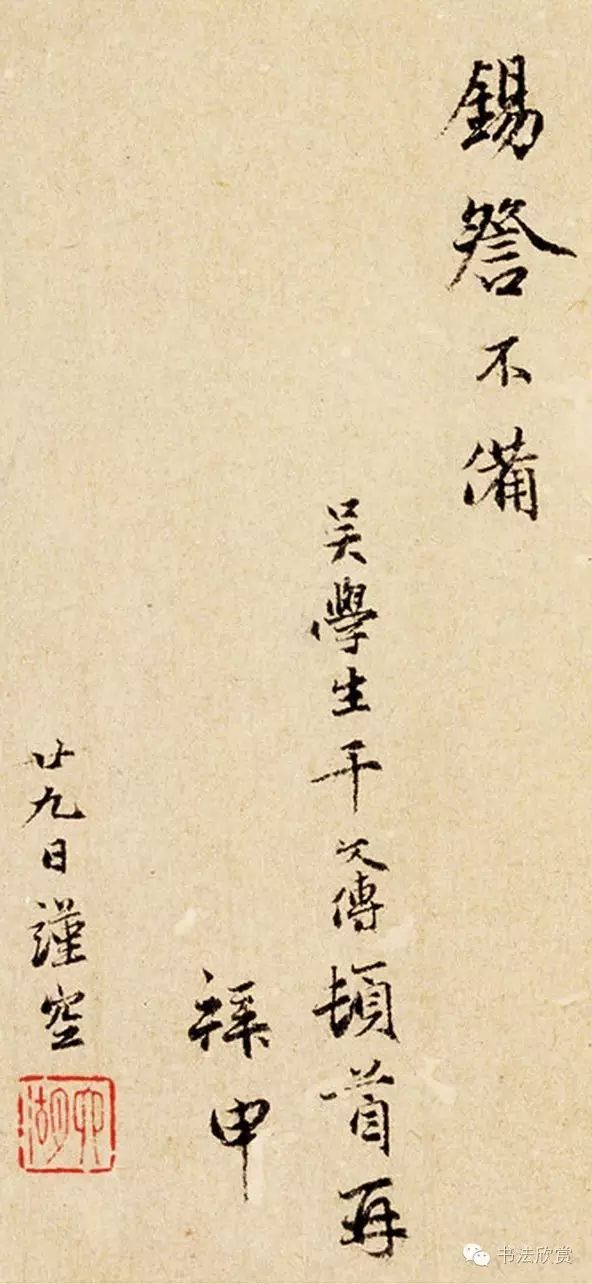 錫答不備
吴學生干文傳頓首再
拜申
廿九日謹空
书法欣赏